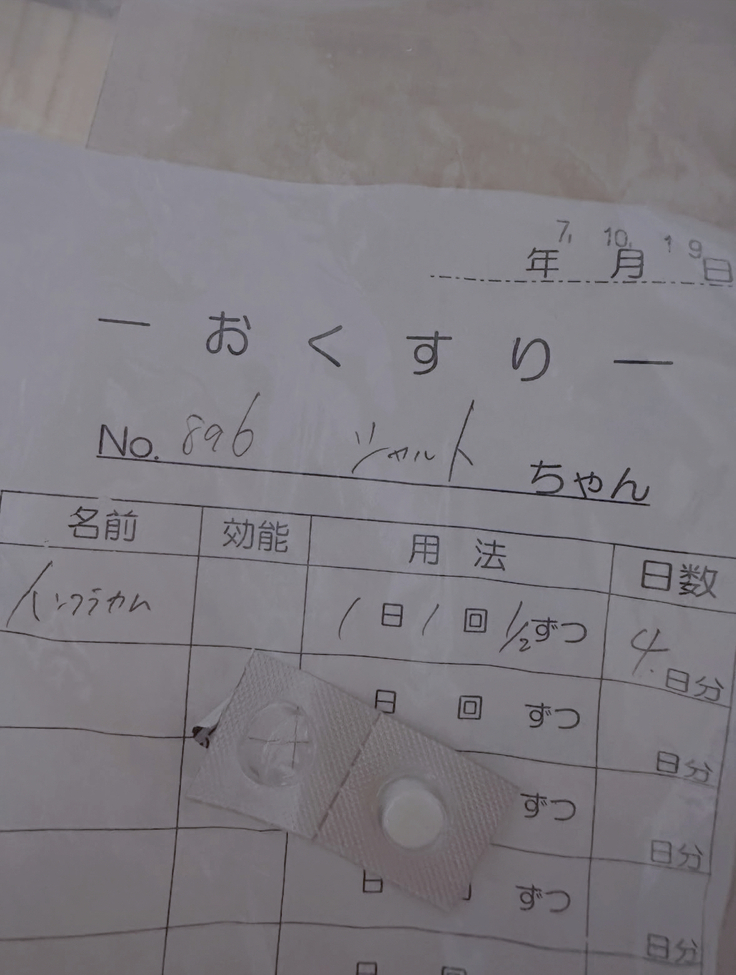 7, 10, 19
年 月 日
ー おくすり ー
No. 896 シャルト ちゃん
名前 効能 用法 日数
1日1回1/2ずつ 4.日分
日 回 ずつ 日分
ずつ 日分
日 ずつ 日分
日 回